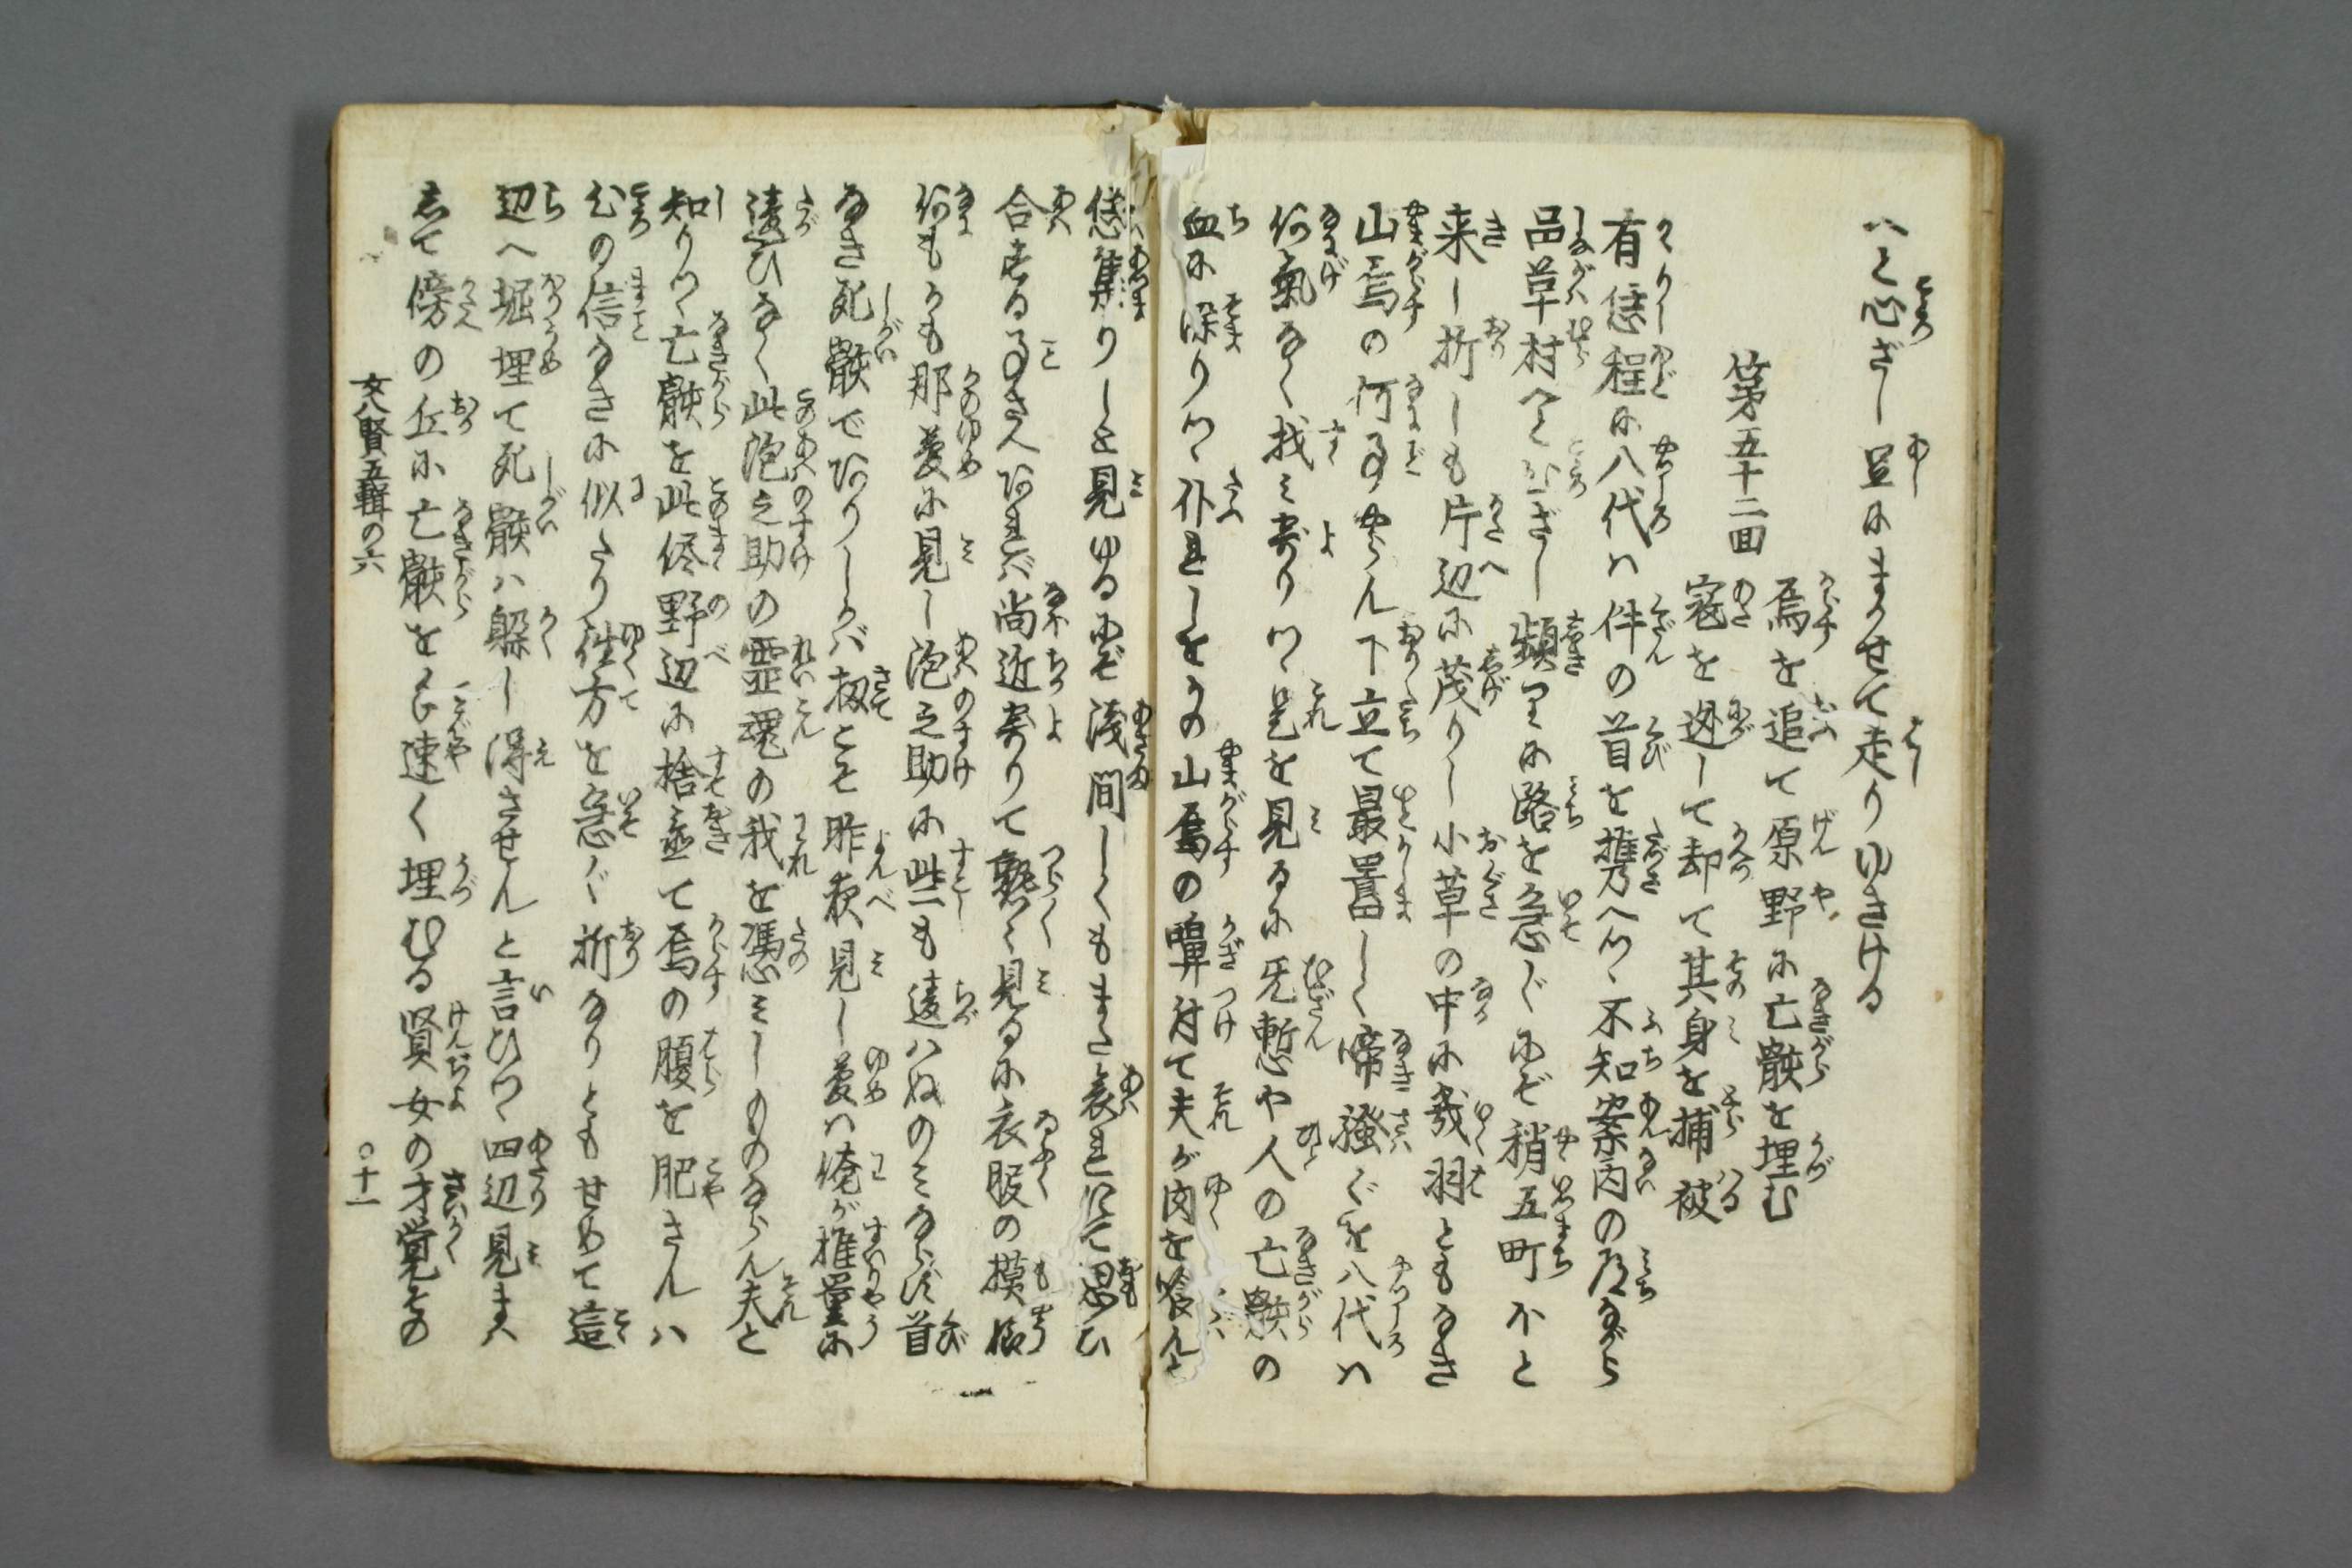 へと心ざし足にまかせて走りゆきける
第五十二回
烏を追て原野に亡骸を埋む
寇を迯して却て其身を捕被
有恁程に八代ハ件の首を携へツヽ不知案内の道ながら
品草村へと心ざし頻りに路を急ぐにぞ稍五町不と
来し折しも片辺に茂りし小草の中に幾羽ともなき
山烏の何事やらん下立て最囂しく啼騒ぐを八代ハ
何氣なく找ミ寄りツヽ是を見るに无慙や人の亡骸の
血に染りツヽ仆れしをかの山烏の嗅付て夫が肉を喰んと
恁集りしと見ゆるにぞ浅間しくもまた哀れにて思ひ
合する事さへあれバ尚近寄りて熟々見るに衣服の摸様
何もかも那夢に見し泡之助に些も違ハぬのミならず首
なき死骸でありしかバ扨こそ昨夜見し夢ハ俺が推量に
違ひなく此泡之助の霊魂の我を憑ミしものならん夫と
知りツヽ亡骸を此侭野辺に捨置て烏の腹を肥さんハ
心の信なきに似たり往方を急ぐ折なりともせめて這
辺へ堀埋て死骸ハ躲し得させんと言ひツヽ四辺見まハ
して傍の丘に亡骸を手速く埋むる賢女の才覚その
女八賢五輯の六
〇十一